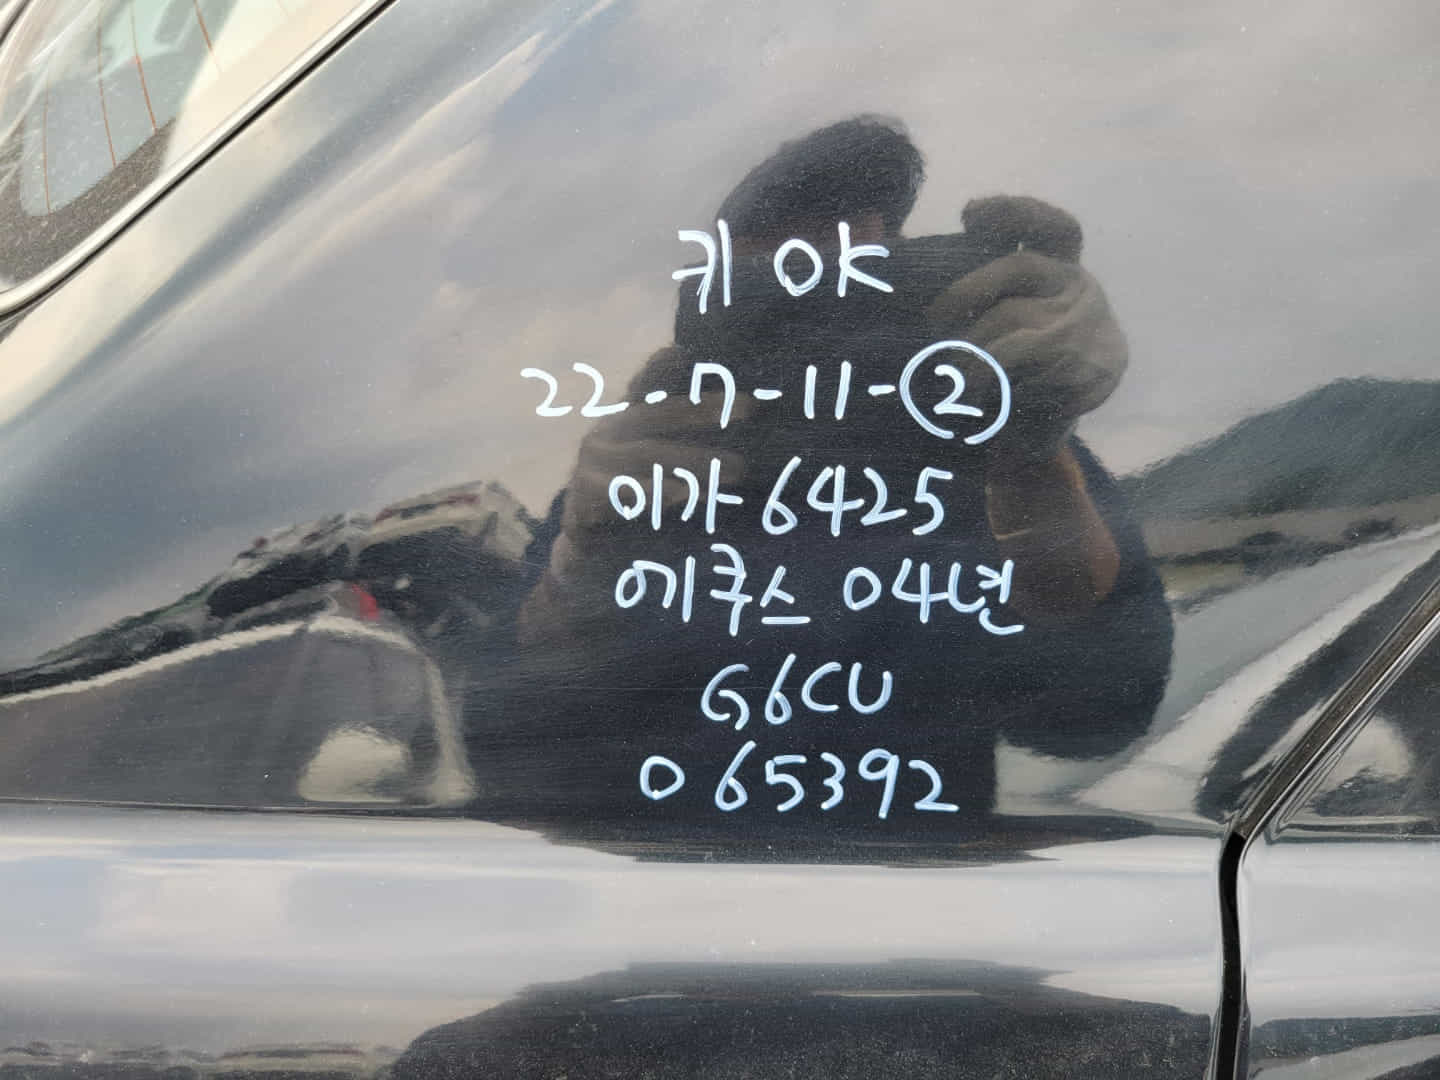 키 OK
22-7-11-②
이가 6425
에쿠스 04년
G6CU
065392